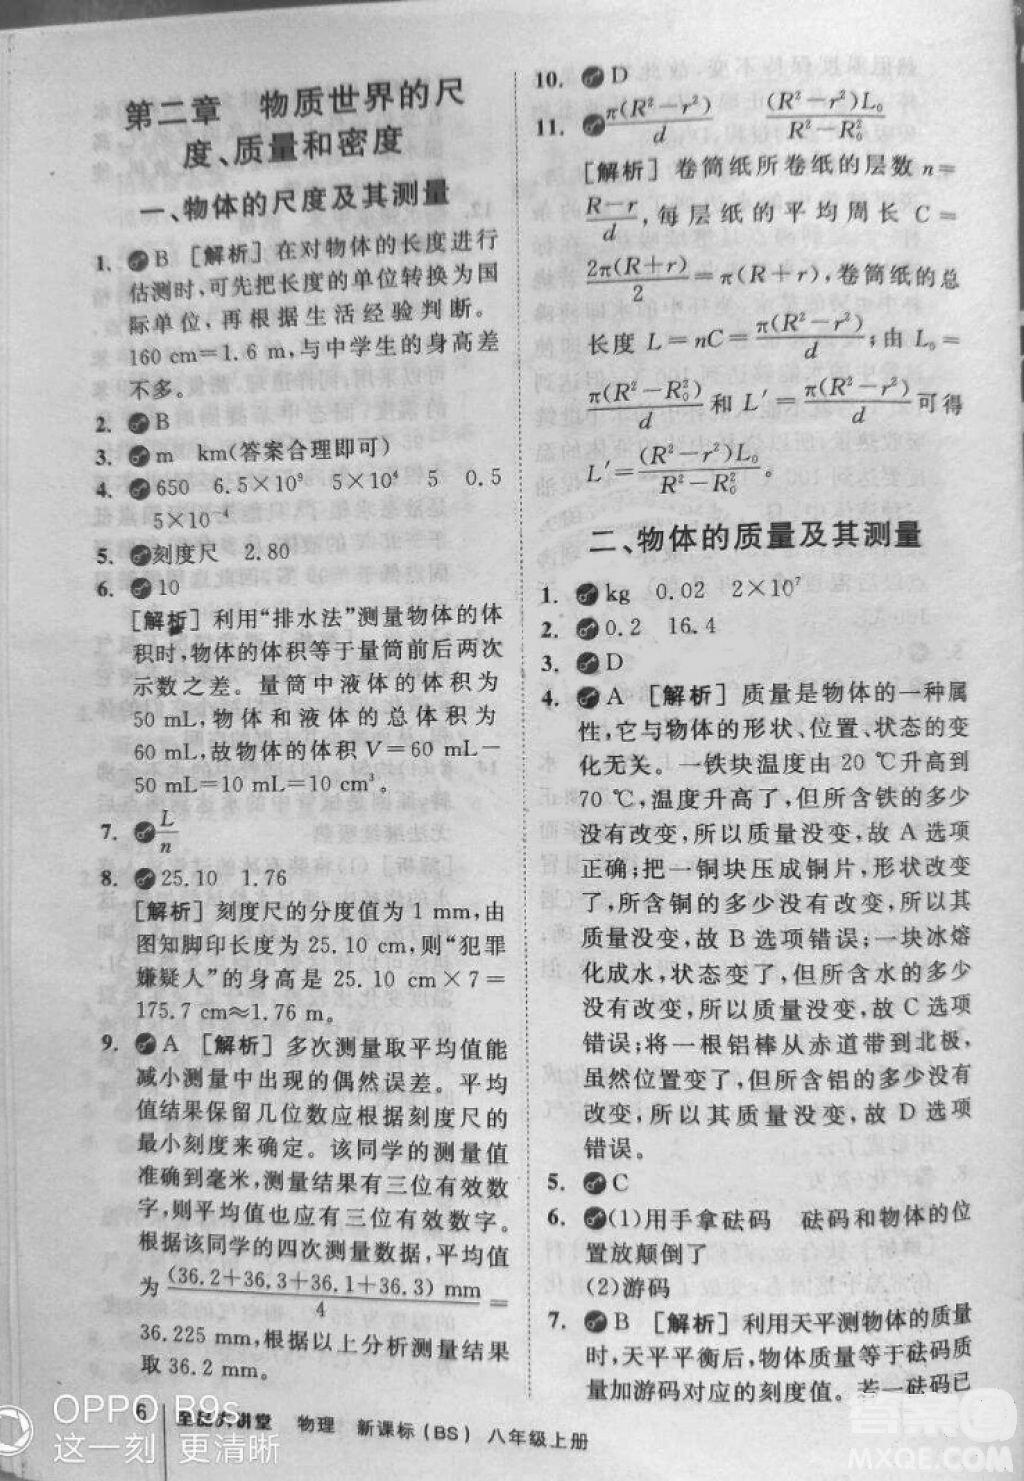 第二章 物质世界的尺
度、质量和密度
一、物体的尺度及其测量
1. B [解析]在对物体的长度进行
估测时,可先把长度的单位转换为国
际单位,再根据生活经验判断。
160 cm=1.6 m,与中学生的身高差
不多。
2. B
3. m km(答案合理即可)
4. 650 6.5×10⁹ 5×10⁴ 5 0.5
5×10⁻⁴
5. 刻度尺 2.80
6. 10
[解析]利用“排水法”测量物体的体
积时,物体的体积等于量筒前后两次
示数之差。量筒中液体的体积为
50 mL,物体和液体的总体积为
60 mL,故物体的体积 V=60 mL-
50 mL=10 mL=10 cm³。
7. L/n
8. 25.10 1.76
[解析]刻度尺的分度值为1 mm,由
图知脚印长度为25.10 cm,则“犯罪
嫌疑人”的身高是25.10 cm×7=
175.7 cm≈1.76 m。
9. A [解析]多次测量取平均值能
减小测量中出现的偶然误差。平均
值结果保留几位数应根据刻度尺的
最小刻度来确定。该同学的测量值
准确到毫米,测量结果有三位有效数
字,则平均值也应有三位有效数字。
根据该同学的四次测量数据,平均值
为 (36.2+36.3+36.1+36.3) mm/4 =
36.225 mm,根据以上分析测量结果
取36.2 mm。
10. D
11. π(R²-r²)/d (R²-r²)L₀/(R²-R₀²)
[解析]卷筒纸所卷纸的层数 n=
(R-r)/d,每层纸的平均周长 C=
2π(R+r)/2=π(R+r),卷筒纸的总
长度 L=nC=π(R²-r²)/d;由 L₀=
π(R²-R₀²)/d 和 L′=π(R²-r²)/d 可得
L′=(R²-r²)L₀/(R²-R₀²)。
二、物体的质量及其测量
1. kg 0.02 2×10⁷
2. 0.2 16.4
3. D
4. A [解析]质量是物体的一种属
性,它与物体的形状、位置、状态的变
化无关。一铁块温度由20 ℃升高到
70 ℃,温度升高了,但所含铁的多少
没有改变,所以质量没变,故 A 选项
正确;把一铜块压成铜片,形状改变
了,所含铜的多少没有改变,所以其
质量没变,故 B 选项错误;一块冰熔
化成水,状态变了,但所含水的多少
没有改变,所以质量没变,故 C 选项
错误;将一根铝棒从赤道带到北极,
虽然位置变了,但所含铝的多少没有
改变,所以其质量没变,故 D 选项
错误。
5. C
6. (1)用手拿砝码 砝码和物体的位
置放颠倒了
(2)游码
7. B [解析]利用天平测物体的质量
时,天平平衡后,物体质量等于砝码质
量加游码对应的刻度值。若一砝码已
6 全品大讲堂 物理 新课标(BS) 八年级上册
OPPO B9s
这一刻 更清晰
MXQE.COM